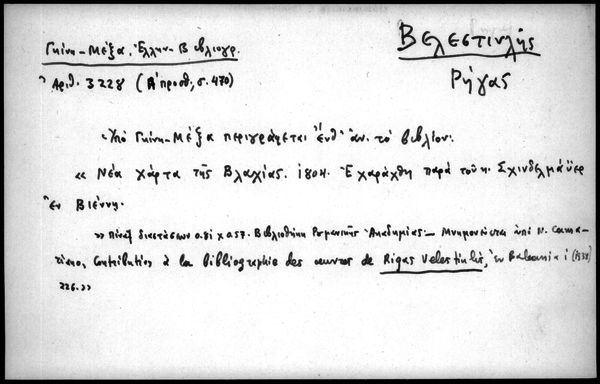 Γκίνη-Μέξα. Ἑλλην. Βιβλιογρ.
Βελεστινλής
Ρήγας
Ἀριθ. 3228 (Α' προσθ; σ. 470)
Ὑπό Γκίνη-Μέξα περιγράφεται ἐνθ' ἀν. τό βιβλίον:
« Νέα χάρτα τῆς Βλαχίας. 1804. Ἐχαράχθη παρά τοῦ κ. Σχινδελμάϋερ
Ἐν Βιέννῃ.
» Πίναξ διαστάσεων 0.81 χ 0.57. Βιβλιοθήκη Ρουμανικῆς Ἀκαδημίας — Μνημονεύεται ὑπό N. Cama-
riano, Contribution à la bibliographie des œuvres de Rigas Velestinlis, ἐν Balcania I (1938)
226.»